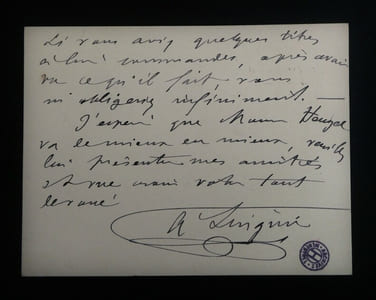 Si vous avez quelques titres
à lui commander, après avoir
vu ce qu'il fait, vous
m'obligerez infiniment. —
J'espère que Mame
va de mieux en mieux, veuillez
lui présenter mes amitiés
et me croire votre tout
dévoué